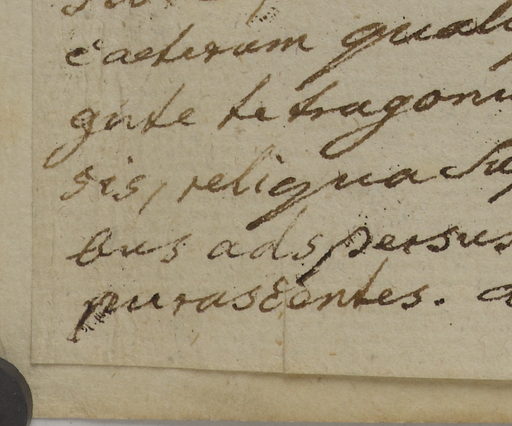 caeterum
gute tetragon
sis, reliqua
bus adspersus
purascentes.